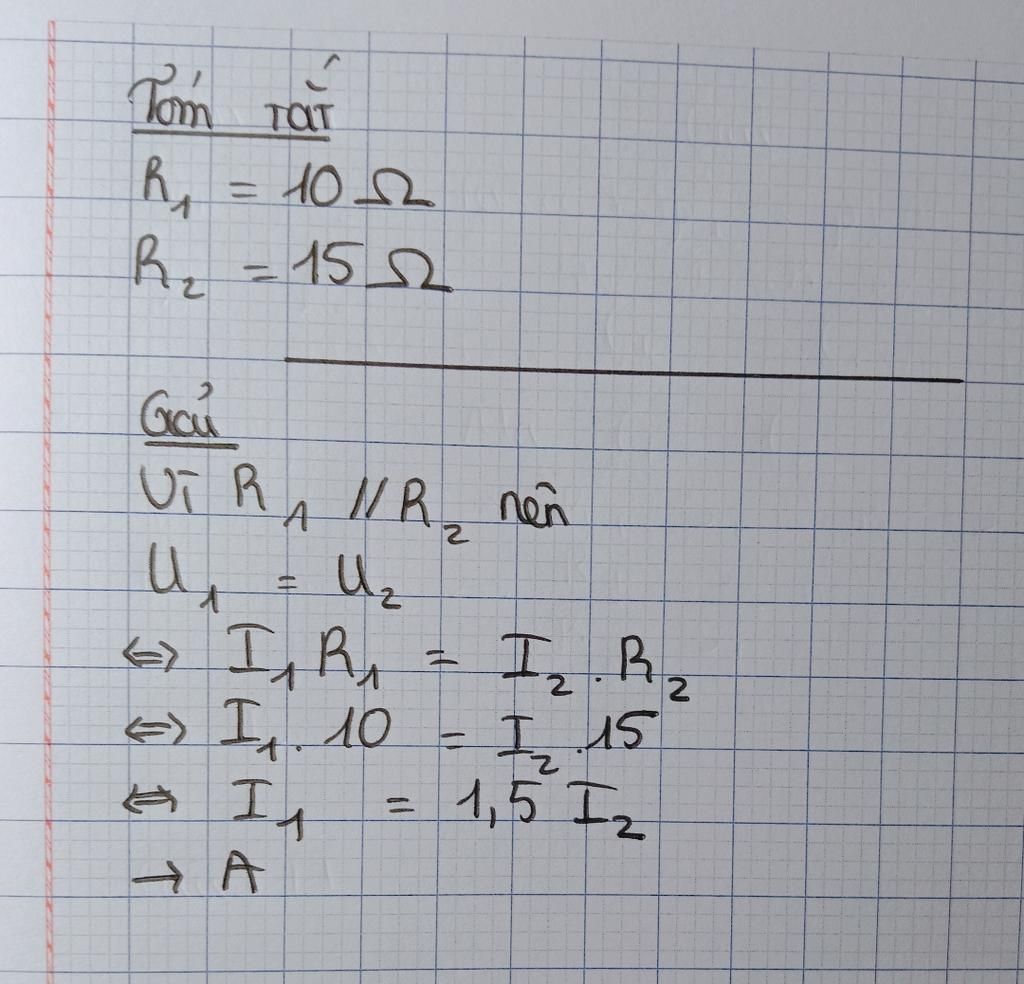 Tóm tắt
R₁ = 10 Ω
R₂ = 15 Ω
Giải
Vì R₁ // R₂ nên
U₁ = U₂
⇔ I₁ R₁ = I₂ . R₂
⇔ I₁ . 10 = I₂ . 15
⇔ I₁ = 1,5 I₂
→ A